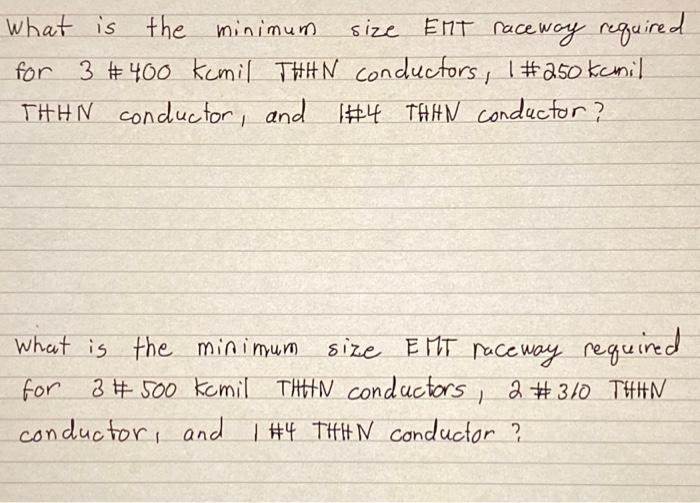 What is the minimum size EMT raceway required
for 3 #400 kcmil THHN conductors, 1 #250 kcmil
THHN conductor, and 1#4 THHN conductor?
what is the minimum size EMT raceway required
for 3 # 500 kcmil THHN conductors, 2 #3/0 THHN
conductor, and 1 #4 THHN conductor?